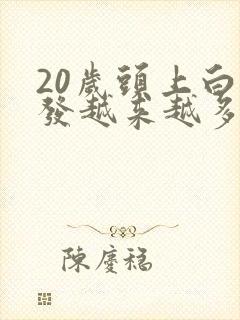 20歲頭上白
發越来越多
陳慶稳